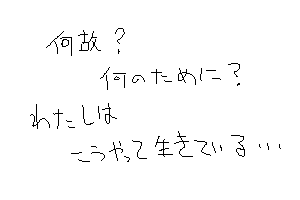 何故?
何のために?
わたしは
こうやって生きている…